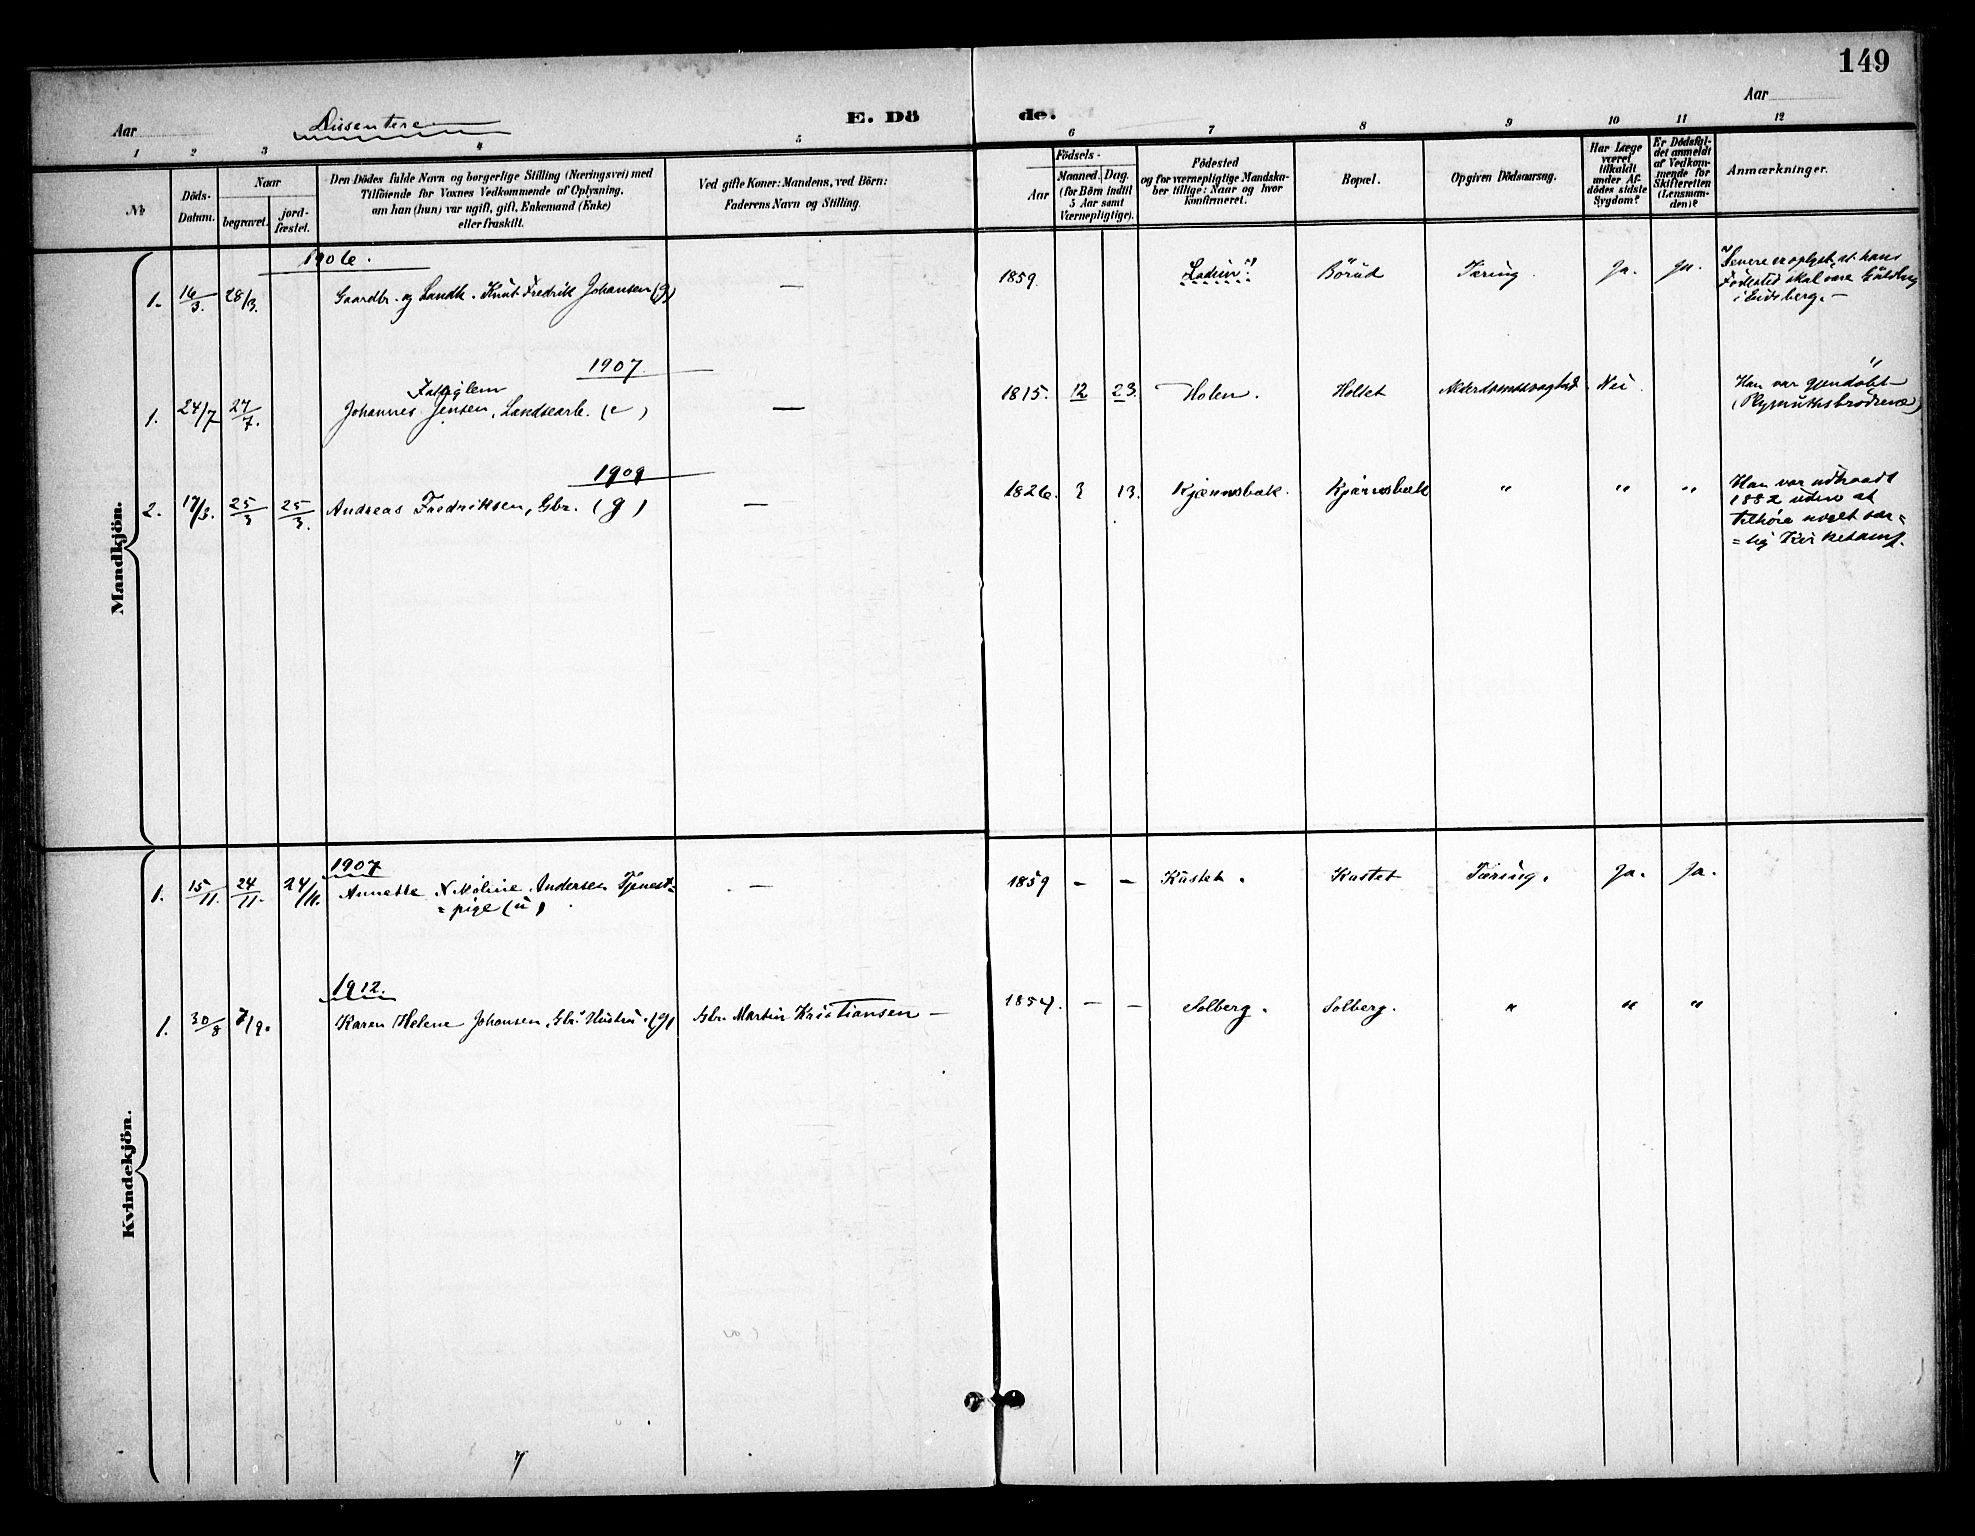 149
Aar
Dissentere
E. Döde.
Aar
1 2 3 4 5 6 7 8 9 10 11 12
№
Döds-
Datum.
Naar
begravet.
jord-
fæstet.
Den Dödes fulde Navn og borgerlige Stilling (Næringsvei) med
Tilföiende for Voxnes Vedkommende af Oplysning,
om han (hun) var ugift, gift, Enkemand (Enke)
eller fraskilt.
Ved gifte Koner: Mandens, ved Börn:
Faderens Navn og Stilling.
Födsels-
Aar
Maaned. Dag.
(for Börn indtil
5 Aar samt
Værnepligtige).
Födested
og for værnepligtige Mandska-
ber tillige: Naar og hvor
konfirmeret.
Bopæl.
Opgiven Dödsaarsag.
Har Læge
været
tilkaldt
under Af-
dödes sidste
Sygdom?
Er Dödsfal-
det anmeldt
af Vedkom-
mende for
Skifteretten
(Lensman-
den)?
Anmærkninger.
Mandkjön.
1906.
1. 16/3. 28/3. Gaardbr. og Landh. Knut Fredrik Johansen (g) — 1859. Ladim? Börud Tæring. Ja. Ja.
Senere er oplyst, at hans
Födested skal være
i Eidsberg. —
1907
Fattiglem
1. 24/7 27/7. Johannes Jensen, Landsearb. (e) — 1815. 12 23. Holen. Holtet Alderdomssvaghed. Nei
Han var gjendöbt
(Plymuthsbrödrene)
1909
2. 17/3. 25/3 25/3. Andreas Fredriksen, Gbr. (g) — 1826. 3 13. Kjærnsbæk. Kjærnsbæk " " "
Han var udtraadt
1882 uden at
tilhöre noget sær=
=lig Kirkesamf.
Kvindekjön.
1907
1. 15/11. 24/11. 24/11. Annette N Moline Andersen Tjenest=
=pige (u) — 1859 — — Kastet. Kastet Tæring. Ja. Ja.
1912.
1. 30/8 7/9. Karen Helene Johansen, Gbr. Hustru. (g) Gbr. Martin Kristiansen — 1854. — — Solberg. Solberg. " " "